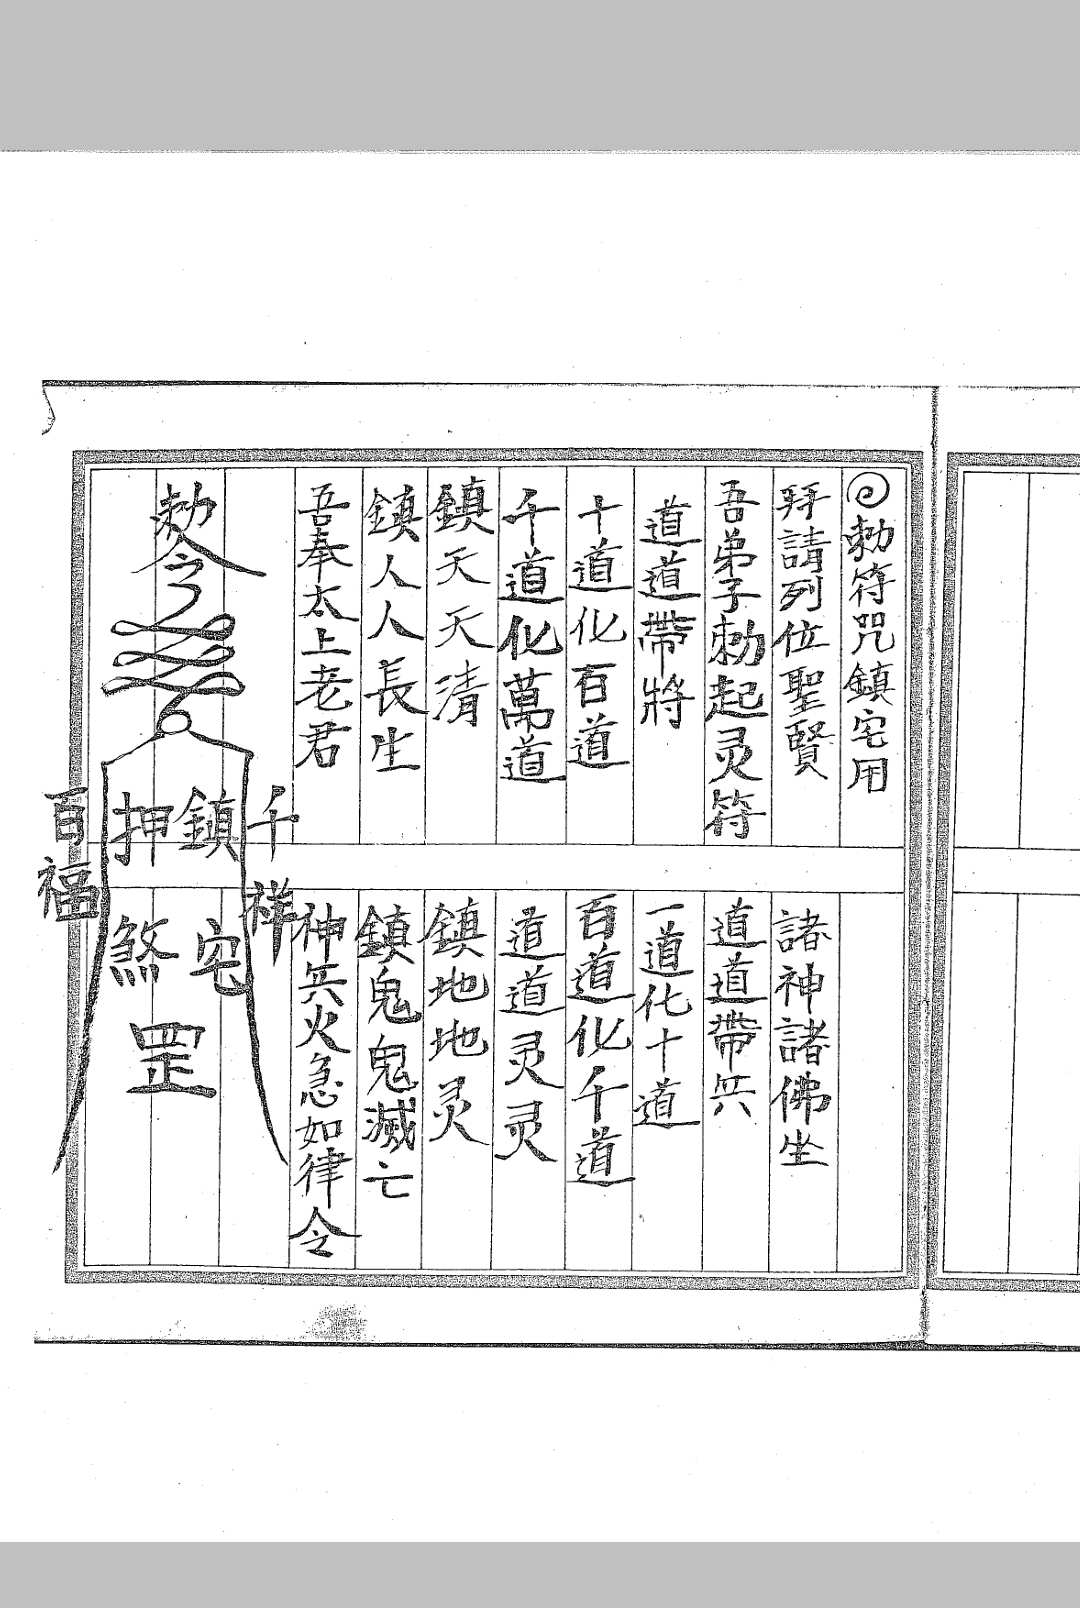 勅符咒鎮宅用
拜請列位聖賢 諸神諸佛坐
吾弟子勅起灵符 道道帶兵
道道帶將 一道化十道
十道化百道 百道化千道
千道化萬道 道道灵灵
鎮天天清 鎮地地灵
鎮人人長生 鎮鬼鬼滅亡
吾奉太上老君 神兵火急如律令
勅令
千祥
鎮宅
押煞
罡
百福